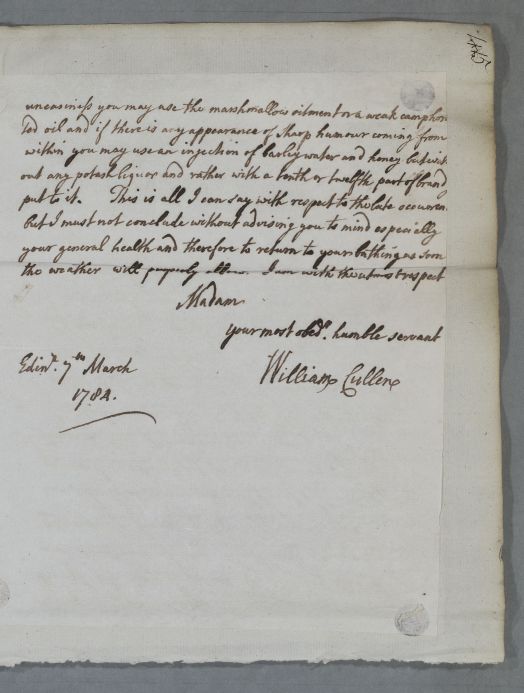 uneasiness you may use the marshmallow ointment or a weak camphor
ted oil and if there is any appearance of sharp humour coming from
within you may use an injection of barley water and honey but with
out any potash liquor and rather with a tenth or twelfth part of brandy
put to it. This is all I can say with respect to the late occurren
but I must not conclude without advising you to mind especially
your general health and therefore to return to your bathing as soon
the weather will properly allow. I am with the utmost respect
Madam
your most obedt. humble servant
William Cullen
Edinr. 7th March
1784.